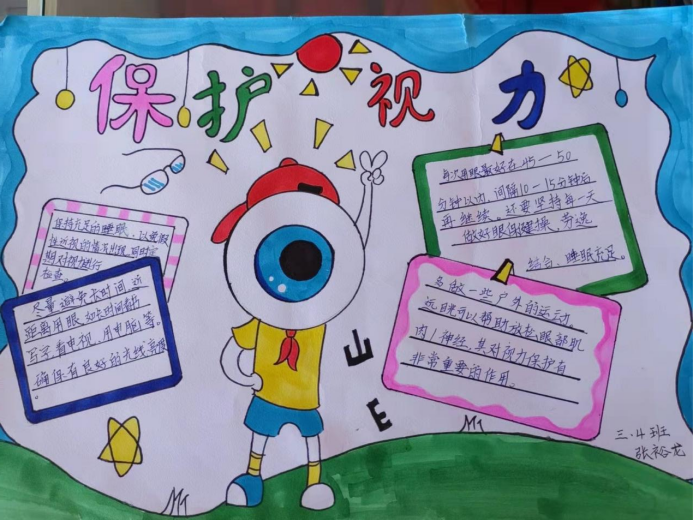 保护视力
保持充足的睡眠,以避假
性近视的情况出现,同时定
期对视力进行
检查。
尽量避免长时间近
距离用眼 如长时间看书
写字看电视、用电脑等。
确保有良好的光线亮度
。
每次用眼最好在45—50
分钟以内,间隔10—15分钟后
再继续。还要坚持每一天
做好眼保健操,劳逸
结合、睡眠充足。
多做一些户外的运动。
远眺可以帮助放松眼部肌
肉/神经,其对视力保护有
非常重要的作用。
山
E
三.4班
张裕龙